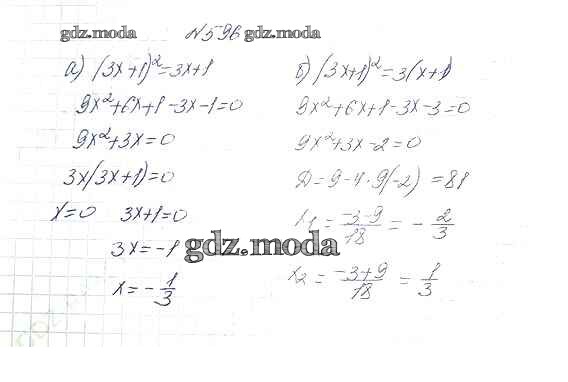 gdz.moda №596 gdz.moda
а) (3x+1)²=3x+1
9x²+6x+1-3x-1=0
9x²+3x=0
3x(3x+1)=0
x=0 3x+1=0
3x=-1
x=-1/3
б) (3x+1)²=3(x+1)
9x²+6x+1-3x-3=0
9x²+3x-2=0
D=9-4·9(-2)=81
x₁=(-3-9)/18=-2/3
gdz.moda
x₂=(-3+9)/18=1/3